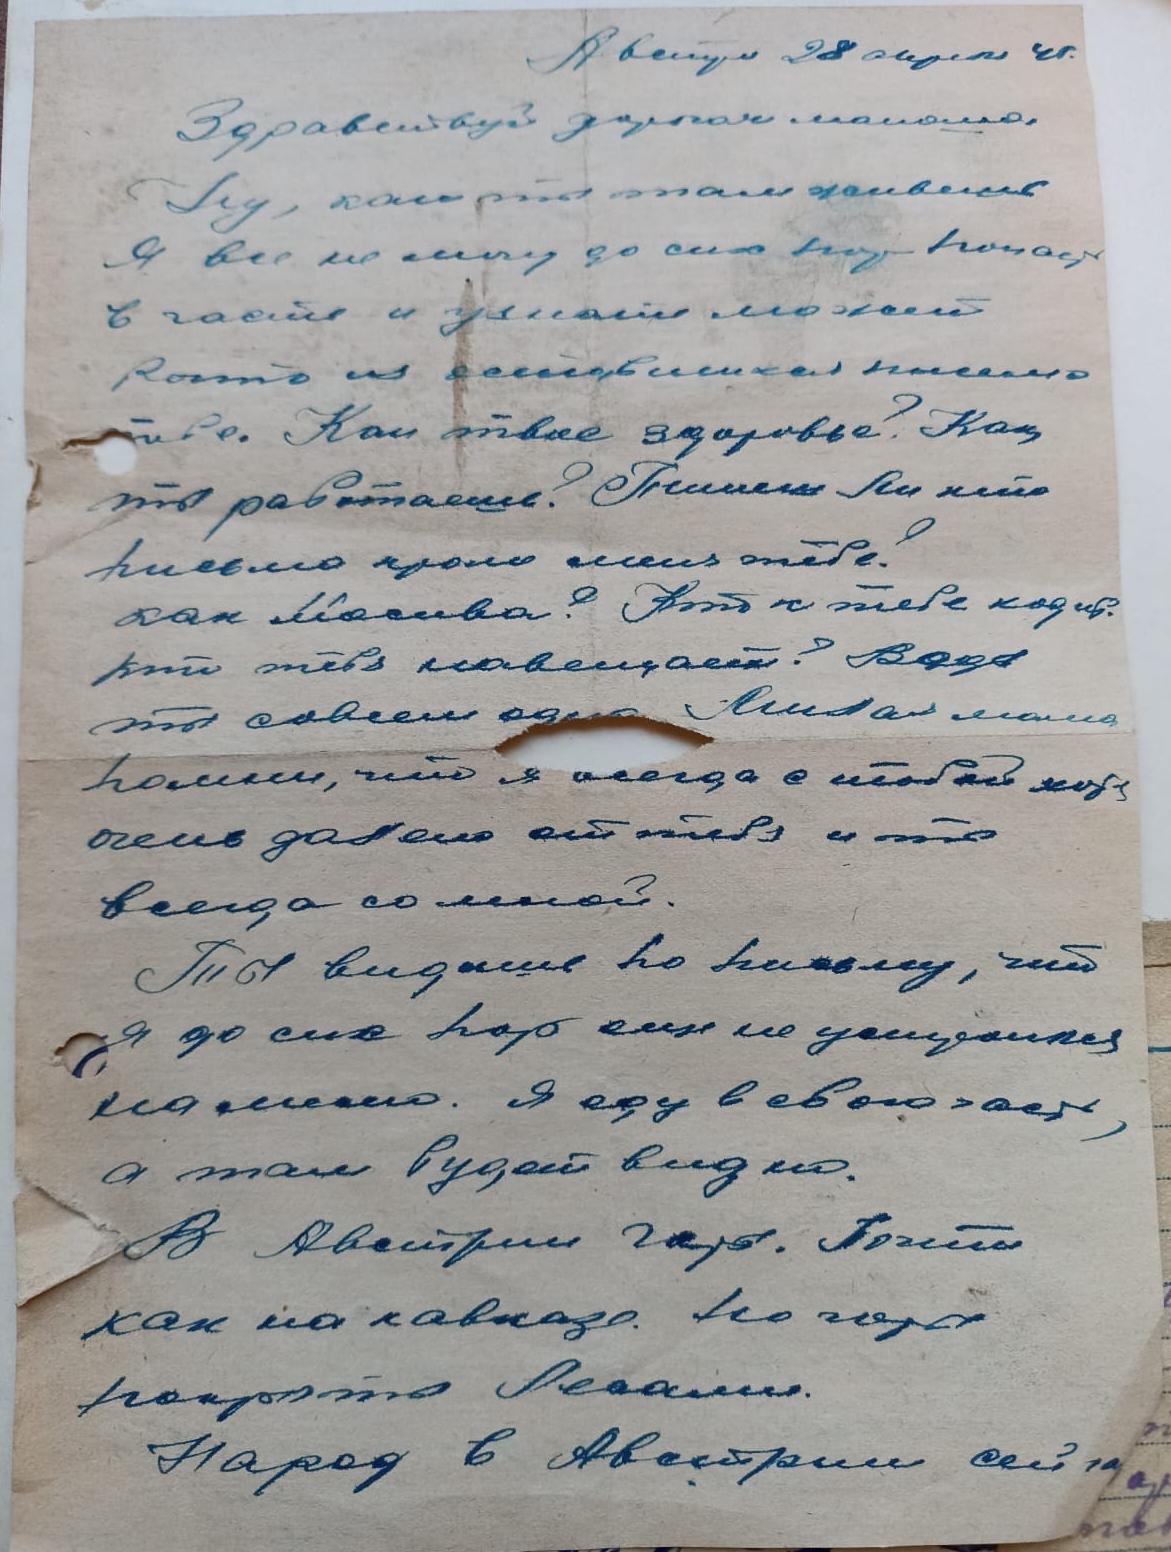 Австрия 28 апреля 45.
Здравствуй дорогая мамаша.
Ну, как ты там живешь
Я все не могу до сих пор попасть
в часть и узнать может
кто-то из оставшихся писем
тебе. Как твое здоровье? Как
ты работаешь? Пишет ли кто
письмо кроме меня тебе?
как Москва? Кто к тебе ходит.
кто тебя навещает? Ведь
ты совсем одна Милая мама
помни, что я всегда с тобой хотя
очень далеко от тебя и ты
всегда со мной.
Ты видишь по письму, что
я до сих пор еще не устроился
на место. Я еду в свою часть,
а там будет видно.
В Австрии горы. Почти
как на кавказе. Но горы
покрыты лесами.
Народ в Австрии сейча